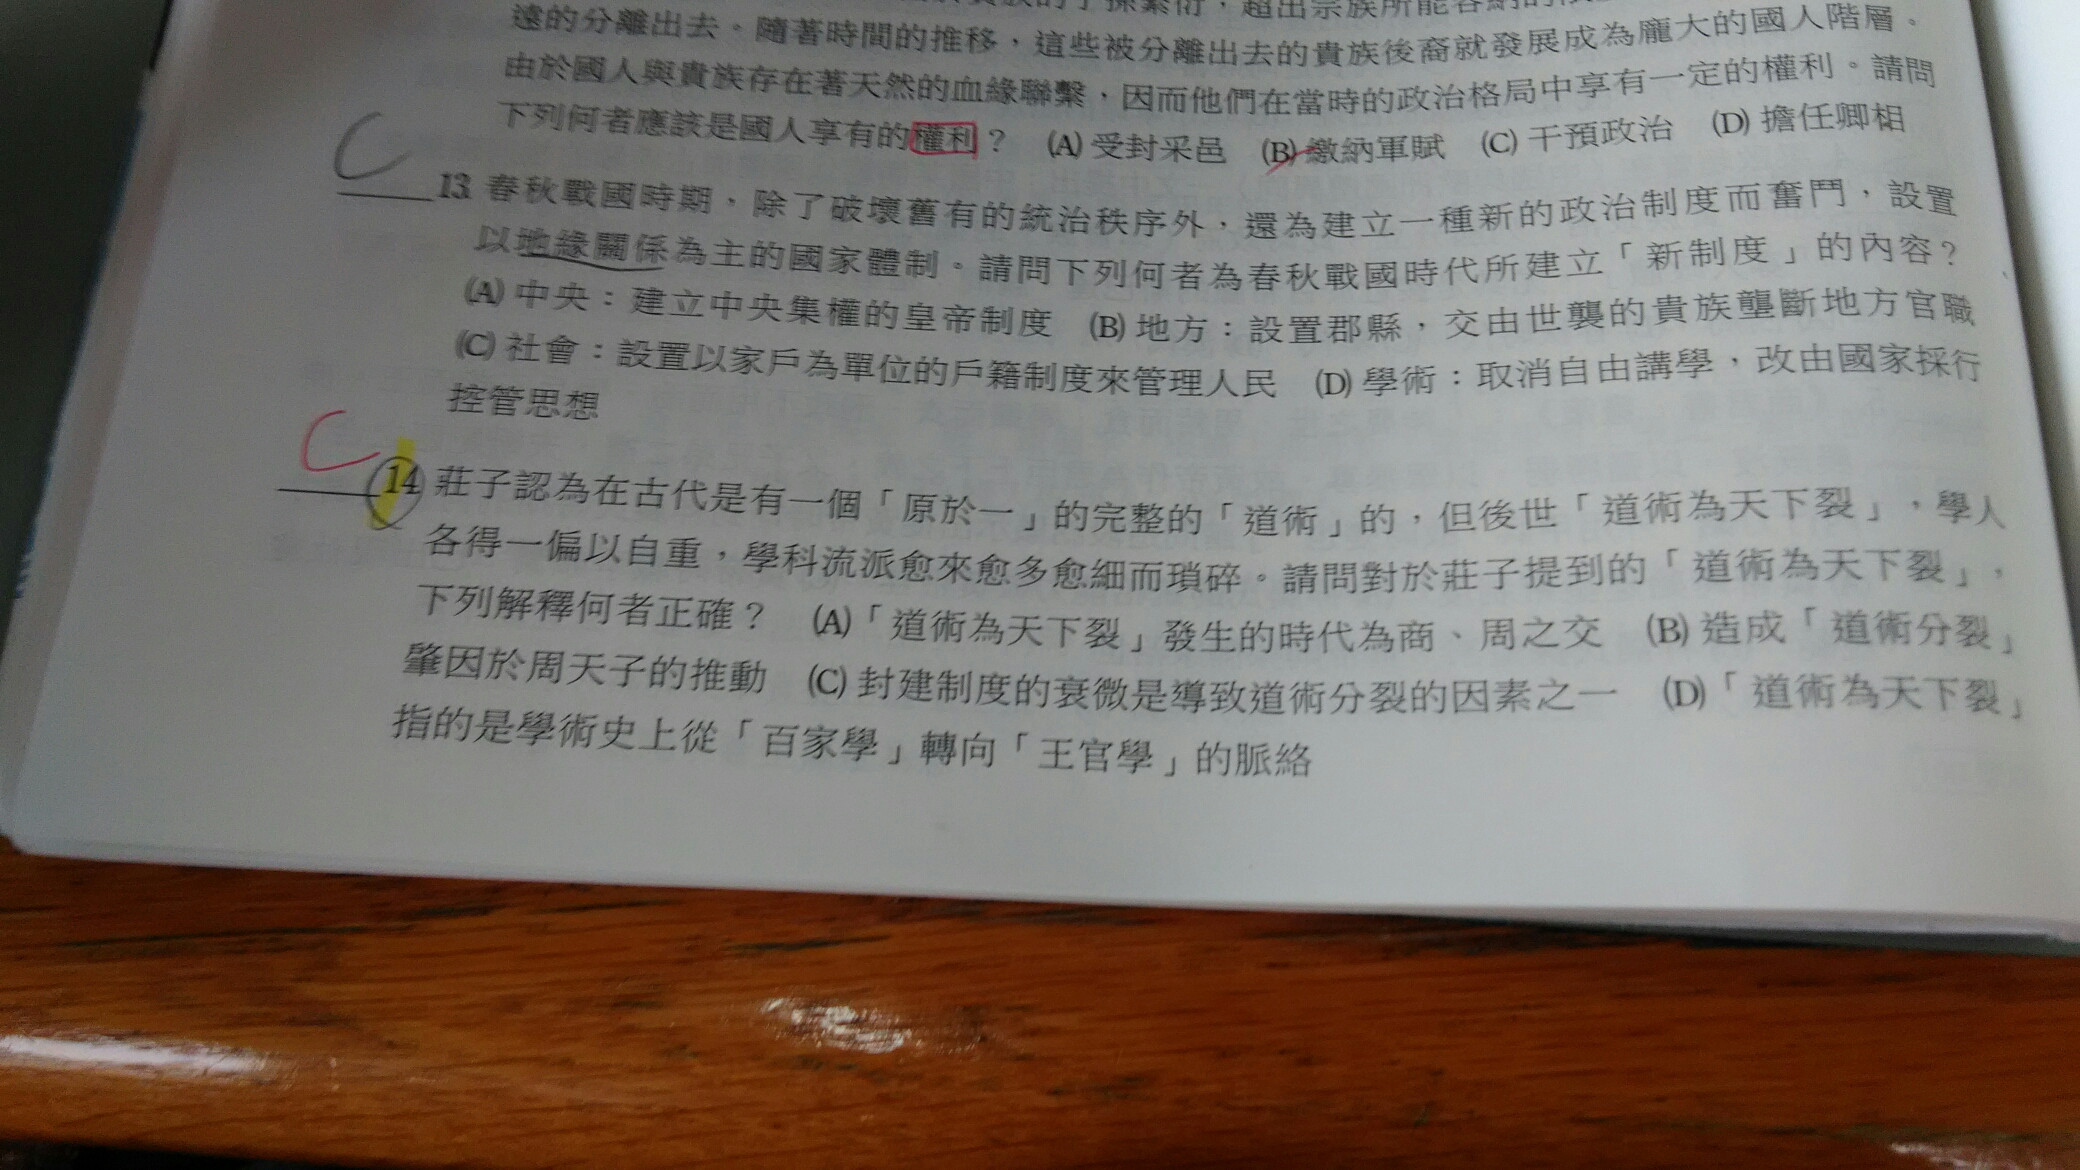 超出宗族所能容納的
遠的分離出去。隨著時間的推移，這些被分離出去的貴族後裔就發展成為龐大的國人階層。
由於國人與貴族存在著天然的血緣聯繫，因而他們在當時的政治格局中享有一定的權利。請問
下列何者應該是國人享有的權利？ (A) 受封采邑 (B) 繳納軍賦 (C) 干預政治 (D) 擔任卿相
C 13. 春秋戰國時期，除了破壞舊有的統治秩序外，還為建立一種新的政治制度而奮鬥，設置
以地緣關係為主的國家體制。請問下列何者為春秋戰國時代所建立「新制度」的內容？
(A) 中央：建立中央集權的皇帝制度 (B) 地方：設置郡縣，交由世襲的貴族壟斷地方官職
(C) 社會：設置以家戶為單位的戶籍制度來管理人民 (D) 學術：取消自由講學，改由國家採行
控管思想
C 14 莊子認為在古代是有一個「原於一」的完整的「道術」的，但後世「道術為天下裂」，學人
各得一偏以自重，學科流派愈來愈多愈細而瑣碎。請問對於莊子提到的「道術為天下裂」，
下列解釋何者正確？ (A)「道術為天下裂」發生的時代為商、周之交 (B) 造成「道術分裂」
肇因於周天子的推動 (C) 封建制度的衰微是導致道術分裂的因素之一 (D)「道術為天下裂」
指的是學術史上從「百家學」轉向「王官學」的脈絡